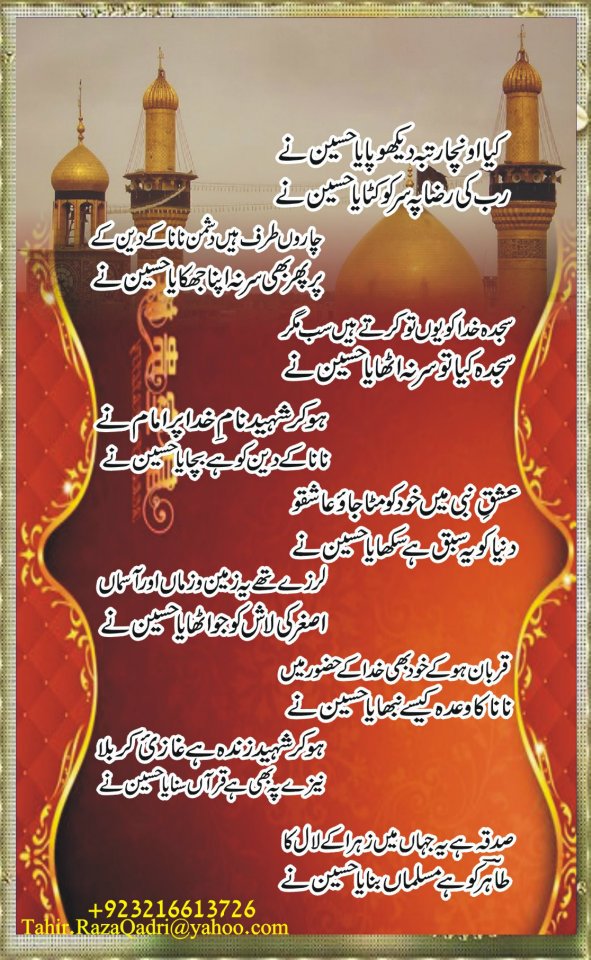 کیا اونچا رتبہ دیکھو پایا حسین نے
رب کی رضا پہ سر کو کٹایا حسین نے
چاروں طرف ہیں دشمن نانا کے دین کے
پر پھر بھی سر نہ اپنا جھکایا حسین نے
سجدہ خدا کو یوں تو کرتے ہیں سب مگر
سجدہ کیا تو سر نہ اٹھایا حسین نے
ہو کر شہید نامِ خدا پر امام نے
نانا کے دین کو ہے بچایا حسین نے
عشقِ نبی میں خود کو مٹا جاؤ عاشقو
دنیا کو یہ سبق ہے سکھایا حسین نے
لرزے تھے یہ زمین و زماں اور آسماں
اصغر کی لاش کو جو اٹھایا حسین نے
قربان ہو کے خود بھی خدا کے حضور میں
نانا کا وعدہ کیسے نبھایا حسین نے
ہو کر شہید زندہ ہے غازئ کربلا
نیزے پہ بھی ہے قرآں سنایا حسین نے
صدقہ ہے یہ جہاں میں زہرا کے لال کا
طاہر کو ہے مسلماں بنایا حسین نے
+923216613726
Tahir.RazaQadri@yahoo.com